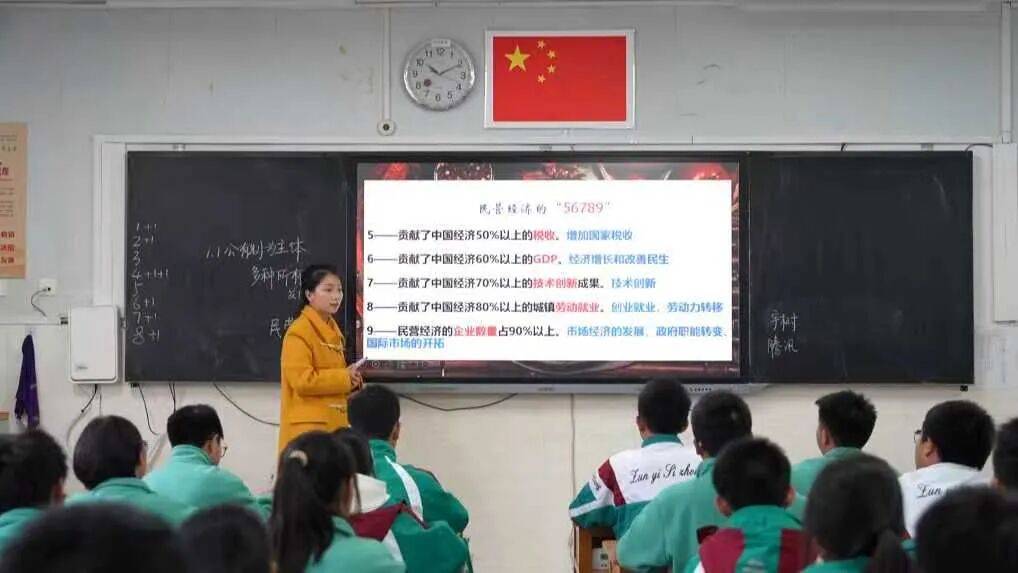 民营经济的“56789”
5——贡献了中国经济50%以上的税收。增加国家税收
6——贡献了中国经济60%以上的GDP。经济增长和改善民生
7——贡献了中国经济70%以上的技术创新成果。技术创新
8——贡献了中国经济80%以上的城镇劳动就业。创业就业、劳动力转移
9——民营经济的企业数量占90%以上。市场经济的发展、政府职能转变、
国际市场的开拓
1 +1
2 +1
3
4 +1+1
5
6 +1
7 +1
8 +1
1.1 公有制为主体
多种所有
民营
宇树
腾讯
Zun yi Si zhong
Zun
12
1
2
3
4
5
6
7
8
9
10
11